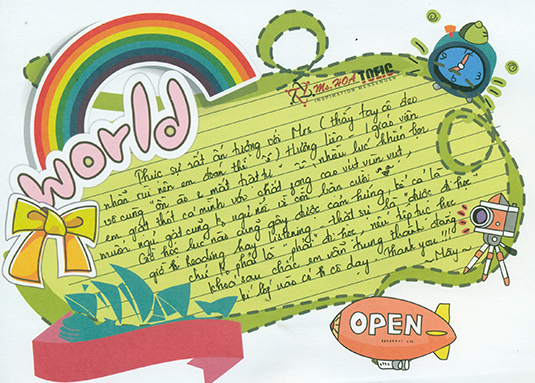 world
Ms. HOA TOEIC
INSPIRATION MESSENGER
Thực sự rất ấn tượng với Mrs (thấy tay cô đeo
nhẫn rùi nên em đoán thế) Hường liên - 1 giáo viên
vô cùng "ồn ào & mất trật tự". nhiều lúc khiến bọn
em giật thót cả mình với chất giọng cao vút viền vút,
muốn ngủ gật cũng k ngủ nổi vì còn bận cười
Cô học lúc nào cũng gây được cảm hứng, bất cả là
giờ bí Reading hay Listening, thật sự là "được đi học"
chứ k phải là "phải" đi học, nếu tiếp tục học
khóa sau chắc em vẫn trung thành đăng
kí lớp nào có cô dạy. Thank you!!!
Mây~
OPEN